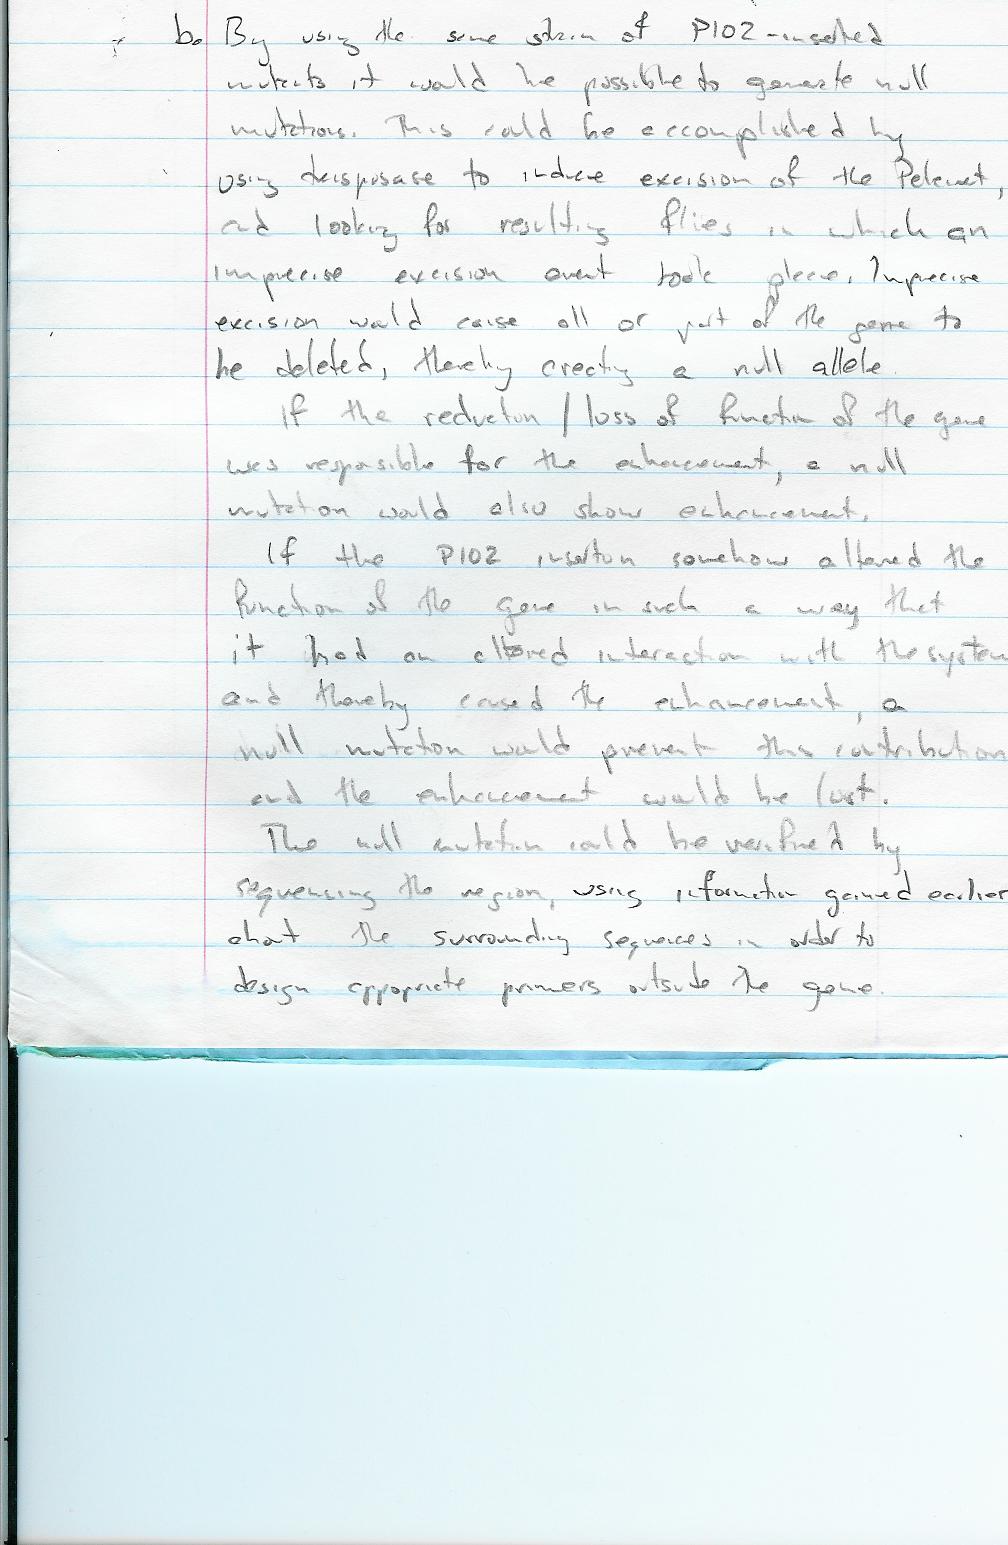 b. By using the same strain of P102-inserted
mutants it would be possible to generate null
mutations. This could be accomplished by
using transposase to induce excision of the Pelement,
and looking for resulting flies in which an
imprecise excision event took place. Imprecise
excision would cause all or part of the gene to
be deleted, thereby creating a null allele.
If the reduction / loss of function of the gene
was responsible for the enhancement, a null
mutation would also show enhancement.
If the P102 insertion somehow altered the
function of the gene in such a way that
it had an altered interaction with the system
and thereby caused the enhancement, a
null mutation would prevent this contribution
and the enhancement would be lost.
The null mutation could be verified by
sequencing the region, using information gained earlier
about the surrounding sequences in order to
design appropriate primers outside the gene.